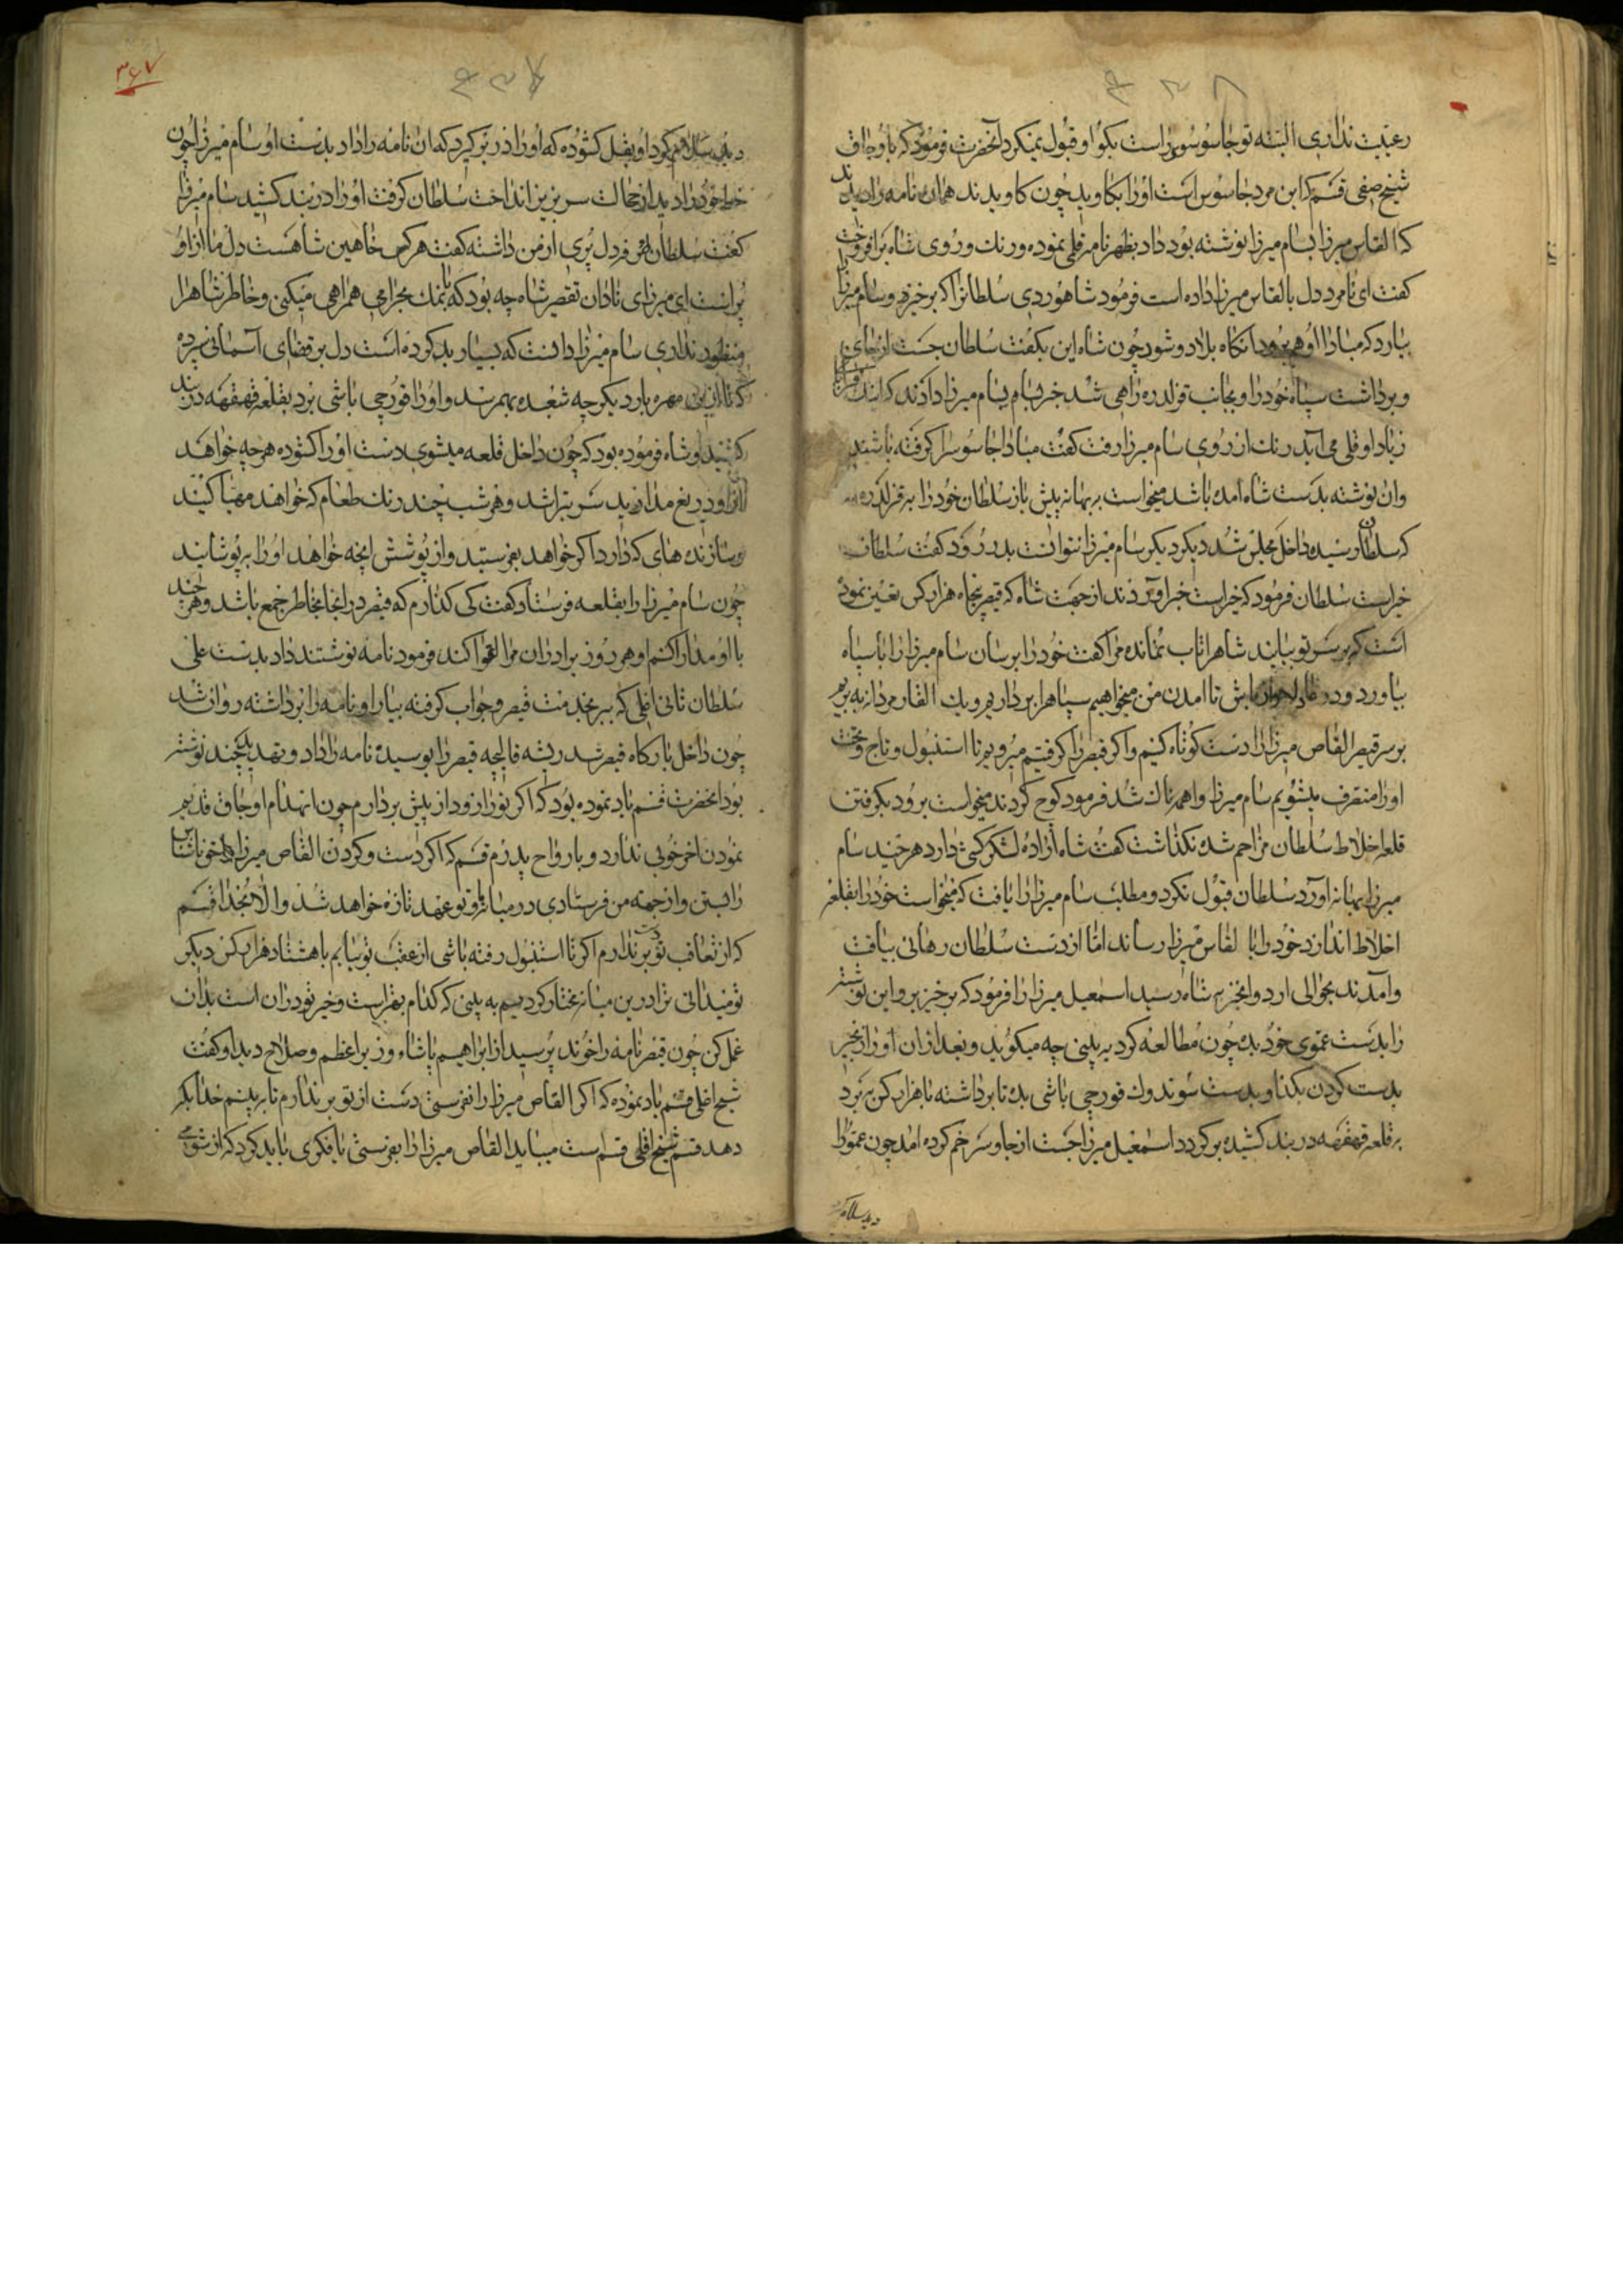 ۴۳۸
رعیت نداری البته تو جاسوسی راست بکو او قبول نمیکرد آنحضرت فرمود که باوجاق
شیخ صفی قسم که این مرد جاسوس است اورا بکاوید چون کاویدند همان نامه را دیدند
که القاس میرزا بسام میرزا نوشته بود داد نظهرنامر قلمی نموده و رنک و روی شاه برافروخت
کفت ای نامرد دل بالقاس میرزا داده است فرمود شاهوردی سلطانرا که برخیز و سام میرزا را
بیارد که مبادا او هم برود انکاه بلا دو شود چون شاه این بکفت سلطان جست از جای
و برداشت سپاه خود را و بجانب قزلدره راهی شد خبر بسام میرزا دادند که اینک
زیاد اوقلی می آید رنک از روی سام میرزا رفت کفت مبادا جاسوس را کرفته باشند
وان نوشته بدست شاه آمده باشد میخواست به بهانه پیش باز سلطان خود را به قزلدره
که سلطان رسیده داخل مجلس شد دیکر سام میرزا نتوانست بدر رود کفت سلطان
خیر است سلطان فرمود که خیر است خبر آوردند از جهت شاه که قیصر پنجاه هزار کس تعین نموده
است که بر سر تو بیایند شاه را تاب نمانده مرا کفت خود را برسان سام میرزا را با سپاه
بیاورد و در باش تا امدن من میخواهیم سپاه را برداریم و یک القار مردانه به بریم
بر سر قیصر القاص میرزا را دست کوتاه کنیم و اکر قیصر را کرفتیم میرویم تا استنبول و تاج و تخت
اورا متصرف میشویم سام میرزا واهمه ناک شد فرمود کوج کردند میخواست برود بکرفتن
قلعه اخلاط سلطان مزاحم شده نکذاشت کفت شاه اراده لشکرکشی دارد هرچند سام
میرزا بهانه آورد سلطان قبول نکرد و مطلب سام میرزا را یافت که میخواست خود را بقلعه
اخلاط اندازد خود را با لقاس میرزا رساند امّا از دست سلطان رهائی نیافت
وآمدند بحوالی اردو انخبر به شاه رسید اسمعیل میرزا را فرمود که برخیز برو این نوشته
را بدست عموی خود بده چون مطالعه کرد به بینی چه میکوید و بعد از ان اورا زنجیر
بدست کردن بکذار و بدست سوندوک قورچی باشی بده تا برداشته با هزار کس به برد
به قلعه قهقهه در بند کشیده برکردد اسمعیل میرزا جست از جا و سر خم کرده امد چون عمو را
دید سلام
۳۶۷
۴۳۷
دید سلام کرد او بغل کشوده که اورا در بر کیرد که ان نامه را داد بدست او سام میرزا چون
خط خود را دید از خجالت سر بزیر انداخت سلطان کرفت اورا در بند کشید سام میرزا
کفت سلطان دل پُری از من داشته کفت هر کس خاهین شاهست دل ما از او
پر است ای میرزای نادان تقصیر شاه چه بود که بانمک بحرامی همراهی میکنی و خاطر شاه را
منظور نداری سام میرزا دانست که بسیار بد کرده است دل بر قضای آسمانی سپرده
که تا از این مهره بازد یکر چه شعبده بهم رسد و اورا قورچی باشی برد بقلعه قهقهه در بند
کشید و شاه فرموده بود که چون داخل قلعه میشوی دست اورا کشوده هرچه خواهد
از او دریغ مدارید شربت باشد و هر شب چند رنک طعام که خواهند مهیّا کنید
و سازنده های که دارد اکر خواهد بفرستید و از پوشش انچه خواهد اورا به پوشانید
چون سام میرزا را بقلعه فرستاد کفت کی کذارم که قیصر در انجا بخاطر جمع باشد و هر چند
با او مدارا کنم او هر روز برادران مرا اغوا کند فرمود نامه نوشتند داد بدست علی
سلطان تاتی اغلی که ببر بخدمت قیصر و جواب کرفته بیار او نامه را برداشته روان شد
چون داخل بارکاه قیصر شد ریشه قالیچه قیصر را بوسیده نامه را داد و تهدید چند نوشته
بود انحضرت قسم یاد نموده بود که اکر تورا زود از پیش بردارم چون انهدام اوجاق قدیم
نمودن اخر خوبی ندارد و بارواح پدرم قسم که اکر دست و کردن القاص میرزا حق ناشناس
را بستی و از جهة من فرستادی در میانه من و تو عهد تازه خواهد شد والا بخدا قسم
که از تعاقب تو بر ندارم اکر تا استنبول رفته باشی از عقب تو بیایم با هشتاد هزار کس دیکر
تو میدانی ترا در این میانه مختار کردیم به بینی که کدام بهتر است و خیر تو در ان است بدان
عمل کن چون قیصر نامه را خوند پرسید از ابراهیم پاشاء وزیر اعظم و صلاح دید او کفت
شیخ اغلی قسم یاد نموده که اکر القاص میرزا را نفرستی دست از تو بر ندارم تا به بینیم خدا بکه
دهد قسم شیخ اغلی قسم ست میباید القاص میرزا را بفرستی یا فکری باید کرد که از شومی